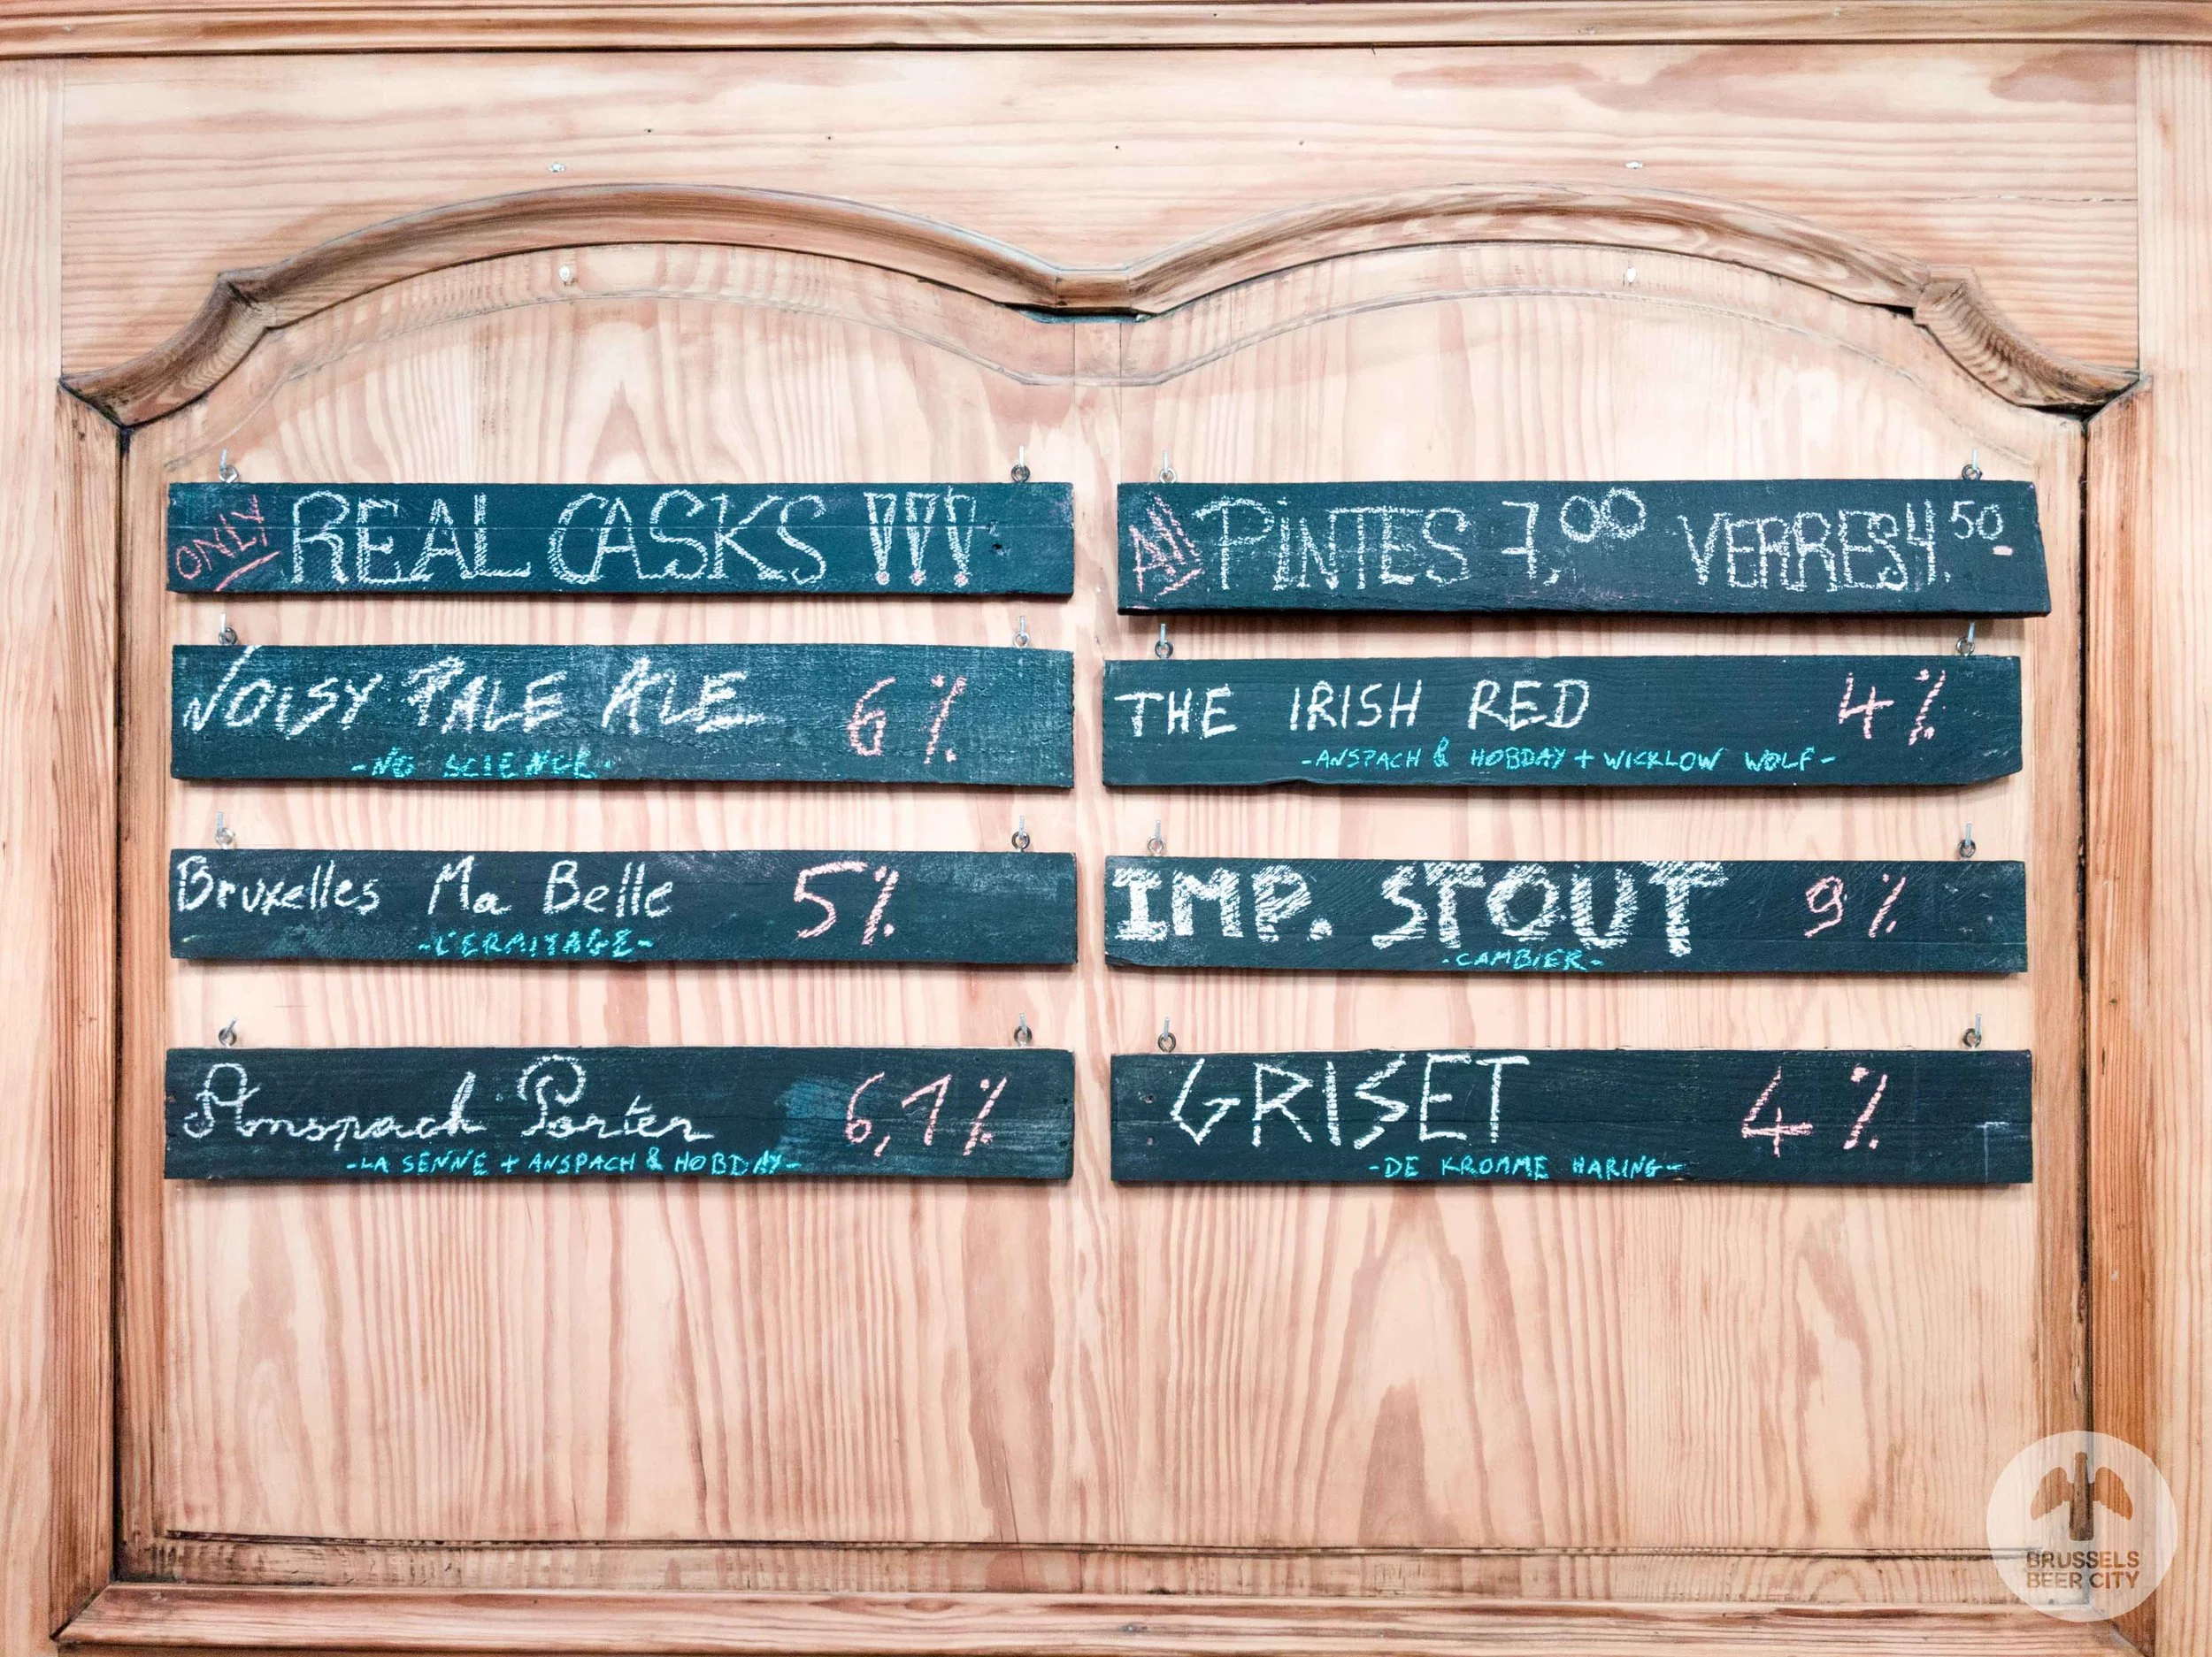 ONLY REAL CASKS !!!
NOISY PALE ALE 6%
-NO SCIENCE-
Bruxelles Ma Belle 5%
-L'ERMITAGE-
Anspach Porter 6,1%
-LA SENNE + ANSPACH & HOBDAY-
All PINTES 7,00 VERRES 4.50
THE IRISH RED 4%
-ANSPACH & HOBDAY + WICKLOW WOLF-
IMP. STOUT 9%
-CAMBIER-
GRISET 4%
-DE KROMME HARING-
BRUSSELS
BEER CITY